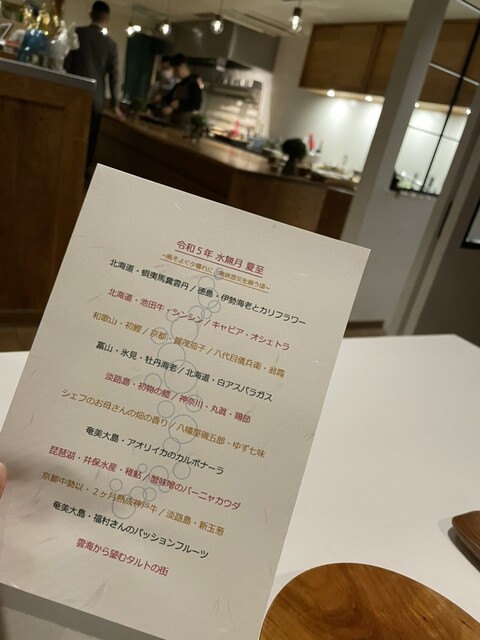 令和5年 水無月 夏至
北海道・蝦夷馬糞雲丹/徳島・伊勢海老とカリフラワー
北海道・池田牛・シンシン/キャビア・オシェトラ
和歌山・初鰹/京都・賀茂茄子/八代目儀兵衛・翁霞
富山・氷見・牡丹海老/北海道・白アスパラガス
淡路島・初物の鱧/神奈川・丸眞・鶏節
シェフのお母さんの畑の香り/八幡屋礒五郎・ゆず七味
奄美大島・アオリイカのカルボナーラ
琵琶湖・井保水産・稚鮎/蟹味噌のバーニャカウダ
京都中勢以・2ヶ月熟成神戸牛/淡路島・新玉葱
奄美大島・福村さんのパッションフルーツ
雲海から望むタルトの街